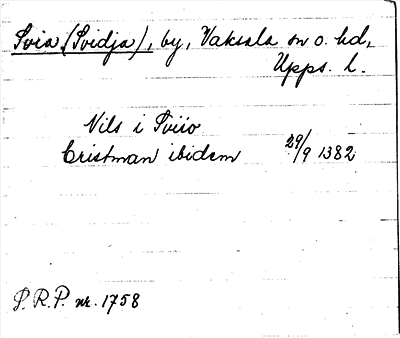 Svia (Svidja), by, Vaksala sn o. hd,
Upps. l.
Nils i Sviio
Cristman ibidem 29/9 1382
S.R.P. nr. 1758